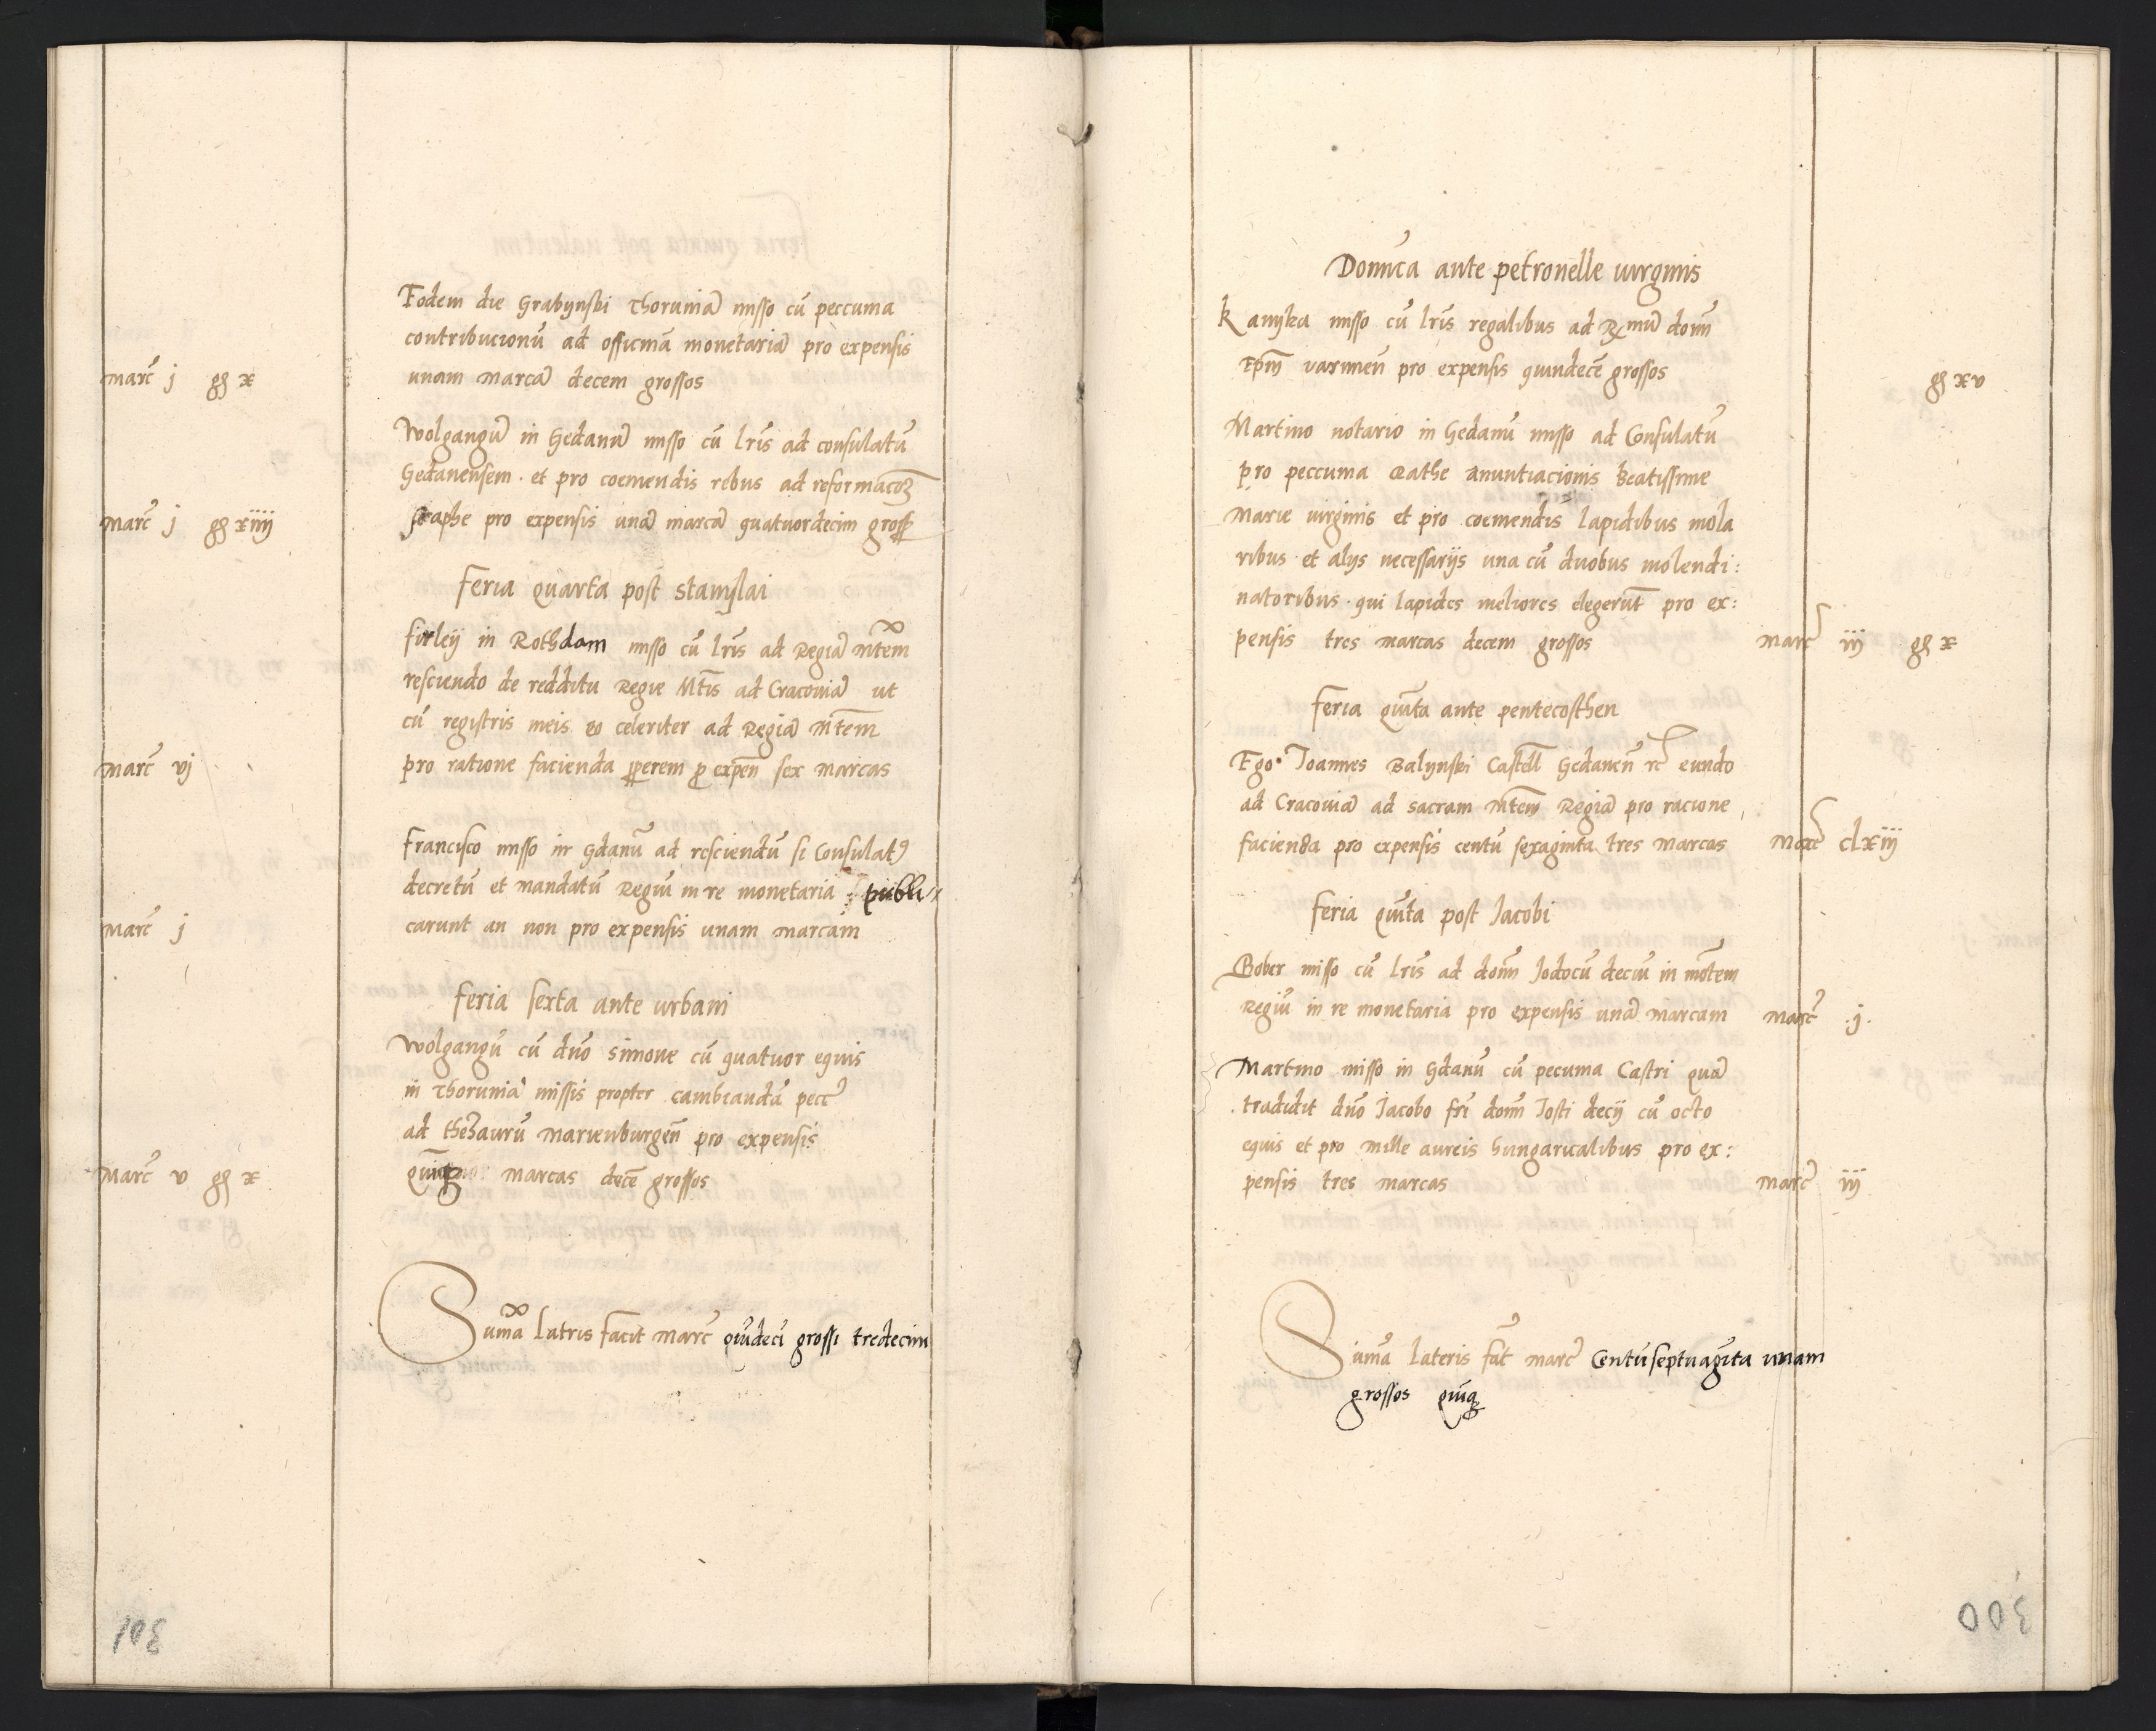 Eodem die Grabynski Thoruniā misso cū peccunia
contribucionū ad officinā monetariā pro expensis
marc̄ j gß x unam marcā decem grossos
Wolgangū in Gedanū misso cū lr̄is ad consulatū
Gedanensem · et pro coemendis rebus ad reformacōȝ
marc̄ j gß xiiij scaphe pro expensis unā marcā quatuordecim gross
Feria quarta post stanislai
firleij in Rothdam misso cū lr̄is ad Regiā mtēm
resciendo de redditu Regie Mtīs ad Cracoviā ut
cū registris meis eo celeriter ad Regiā mtēm
marc̄ vj pro ratione facienda ꝓperem ꝓ expen̄ sex marcas
francisco misso in Gdanū ad resciendū si Consulatꝰ
decretū et mandatū Regiū in re monetaria publi
marc̄ j carunt an non pro expensis unam marcam
feria sexta ante urbani
Wolgangū cū dn̄o simone cū quatuor equis
in Thoruniā missis propter cambiandā pecc̄
ad thezaurū marienburgen̄ pro expensis
marc̄ v gß x quīqꝫ marcas decē grossos
Sum̄a latris facit marc̄ quīdecī grossi tredecim
301
Domīca ante petronelle virginis
Kanyka misso cū lr̄is regalibus ad Rmū dom̄
Epm̄ varmien̄ pro expensis quindecē grossos gß xv
Martino notario in Gedanū misso ad Consulatū
pro peccunia anuntiacionis Beatissime
marie virginis et pro coemendis lapidibus mola
ribus · et alijs necessarijs una cū duobus molendi:
natoribus · qui lapides meliores elegerūt pro ex:
pensis tres marcas decem grossos marc̄ iij gß x
feria quīta ante pentecosthen
Ego Joannes Balynski Castell̄ Gedanen̄ rc̄ eundo
ad Cracoviā ad sacram mtēm Regiā pro racione
facienda pro expensis centū sexaginta tres marcas marc̄ clxiij
feria quīta post Jacobi
Bober misso cū lr̄is ad dom̄ Jodocū deciū in mōtem
Regiū in re monetaria pro expensis unā marcam marc̄ .j.
Martino misso in Gdanū cū pecunia Castri quā
tradidit dn̄o Jacobo fr̄i dom̄ Josti decij cū octo
equis et pro mille aureis hungaricalibus pro ex:
pensis tres marcas marc̄ iij
Sum̄a lateris fac̄t marc̄ Centū septuagīta unam
grossos quīqꝫ
300